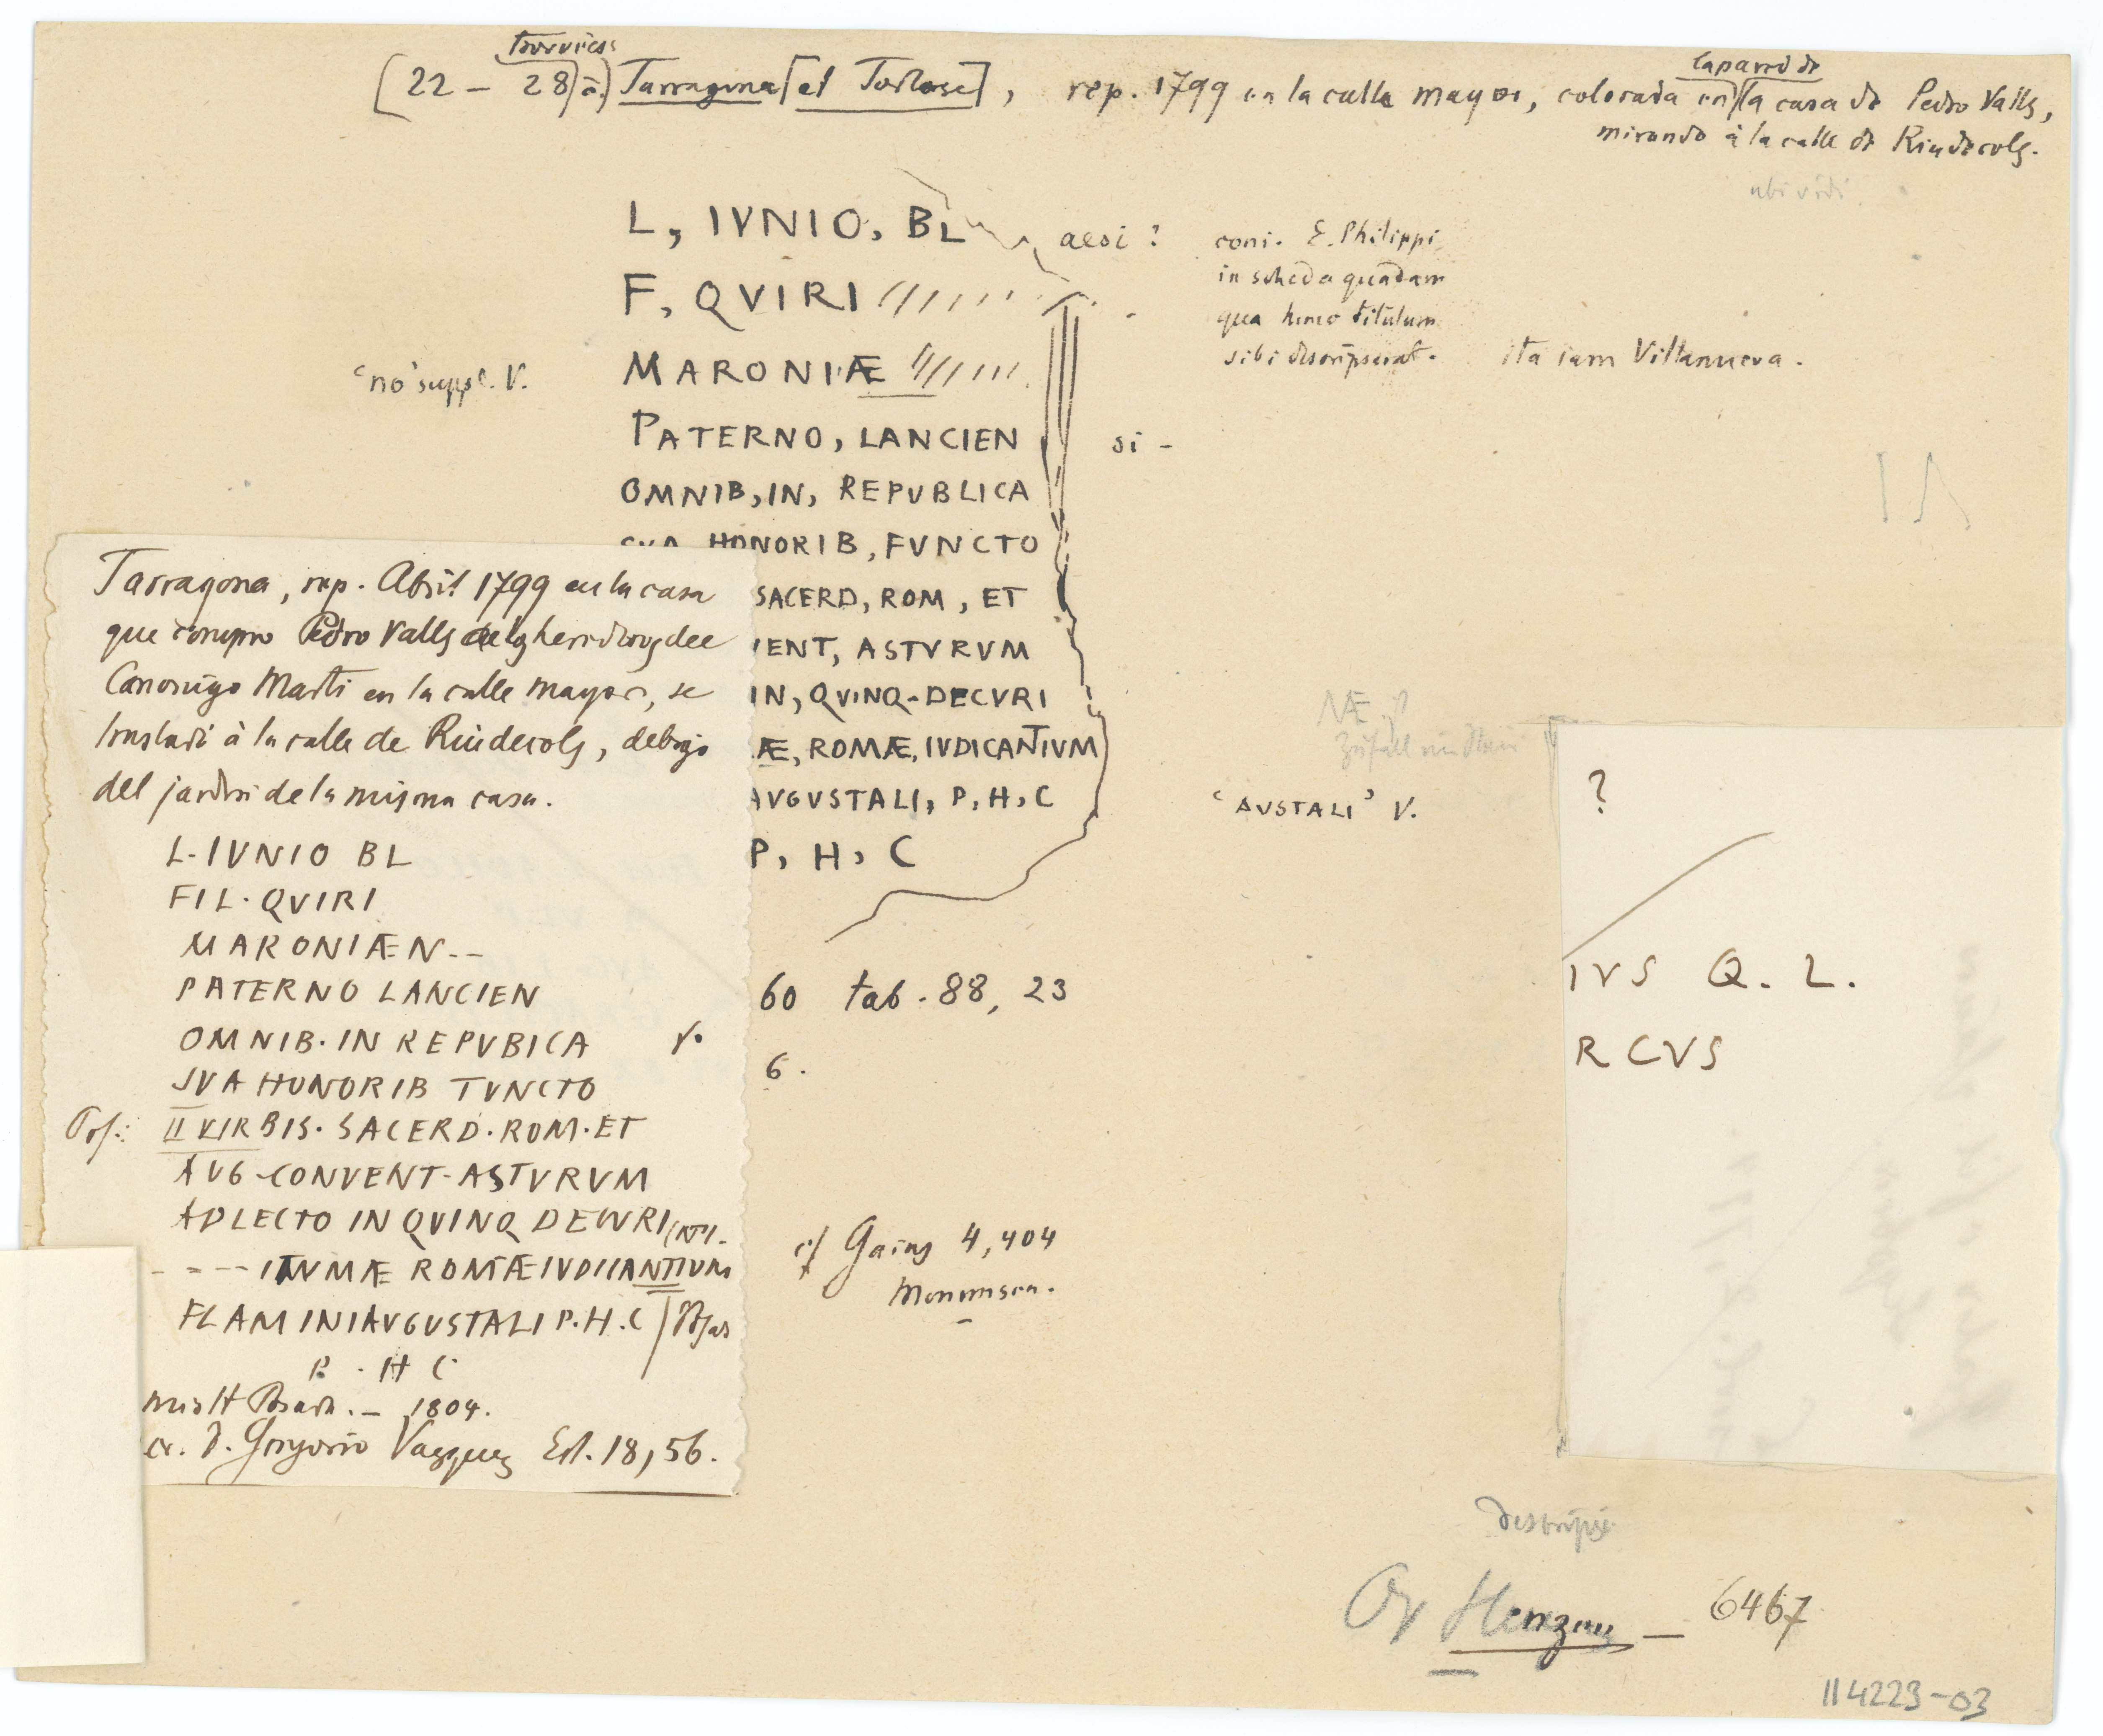 [22 – 28) Tarragona [et Tortosa], rep. 1799 en la calle mayor, colocada en la pared de la casa de Pedro Valls,
mirando à la calle de Riudecols.
ubi vidi
L, IVNIO, BL aesi ?
F, QVIRI
coni. E. Philippi
in scheda quadam
qua hunc titulum
sibi descripserat.
ita iam Villanueva.
'no' suppl. V.
MARONIÆ
PATERNO, LANCIEN si -
OMNIB, IN, REPVBLICA
SVA HONORIB, FVNCTO
SACERD, ROM, ET
IENT, ASTVRVM
IN, QVINQ-DECVRI
Æ, ROMÆ, IVDICANTIVM
AVGVSTALI, P, H, C
'AVSTALI' V.
P, H, C
NÆ
60 tab. 88, 23
6.
cf Gaius 4,104
Mommsen.
Tarragona, rep. Abril 1799 en la casa
que compro Pedro Valls
Canonigo Marti en la calle mayor, se
trasladó à la calle de Riudecols, debajo
del jardin de la misma casa.
L. IVNIO BL
FIL. QVIRI
MARONIÆN--
PATERNO LANCIEN
OMNIB. IN REPVBICA V.
SVA HONORIB TVNCTO
II VIR BIS. SACERD. ROM. ET
AVG-CONVENT-ASTVRVM
ADLECTO IN QVINQ DECVRI
---- ITVMÆ ROMÆ IVDICANTIVM
FLAMINIAVGVSTALI P.H.C
P. H C
1804.
D. Gregorio Vazquez Est. 18, 56.
?
IVS Q. L.
RCVS
descripsi
Or Henzen — 6467
II 4223-03